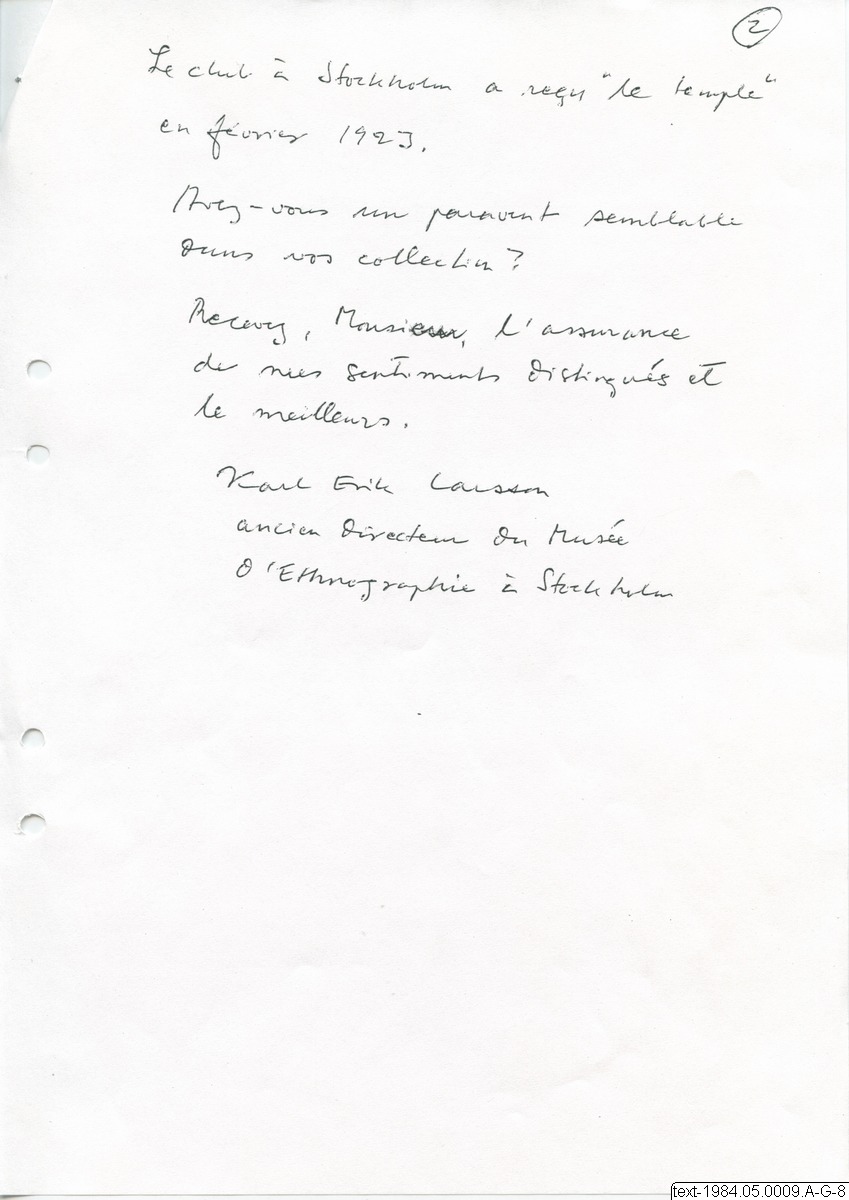 2
Le club à Stockholm a reçu "le temple"
en février 1923.
Avez-vous un paravent semblable
dans vos collection?
Recevez, Monsieur, l'assurance
de mes sentiments distingués et
le meilleurs.
Karl Erik Larsson
ancien directeur du Musée
d'Ethnographie à Stockholm
text-1984.05.0009.A-G-8